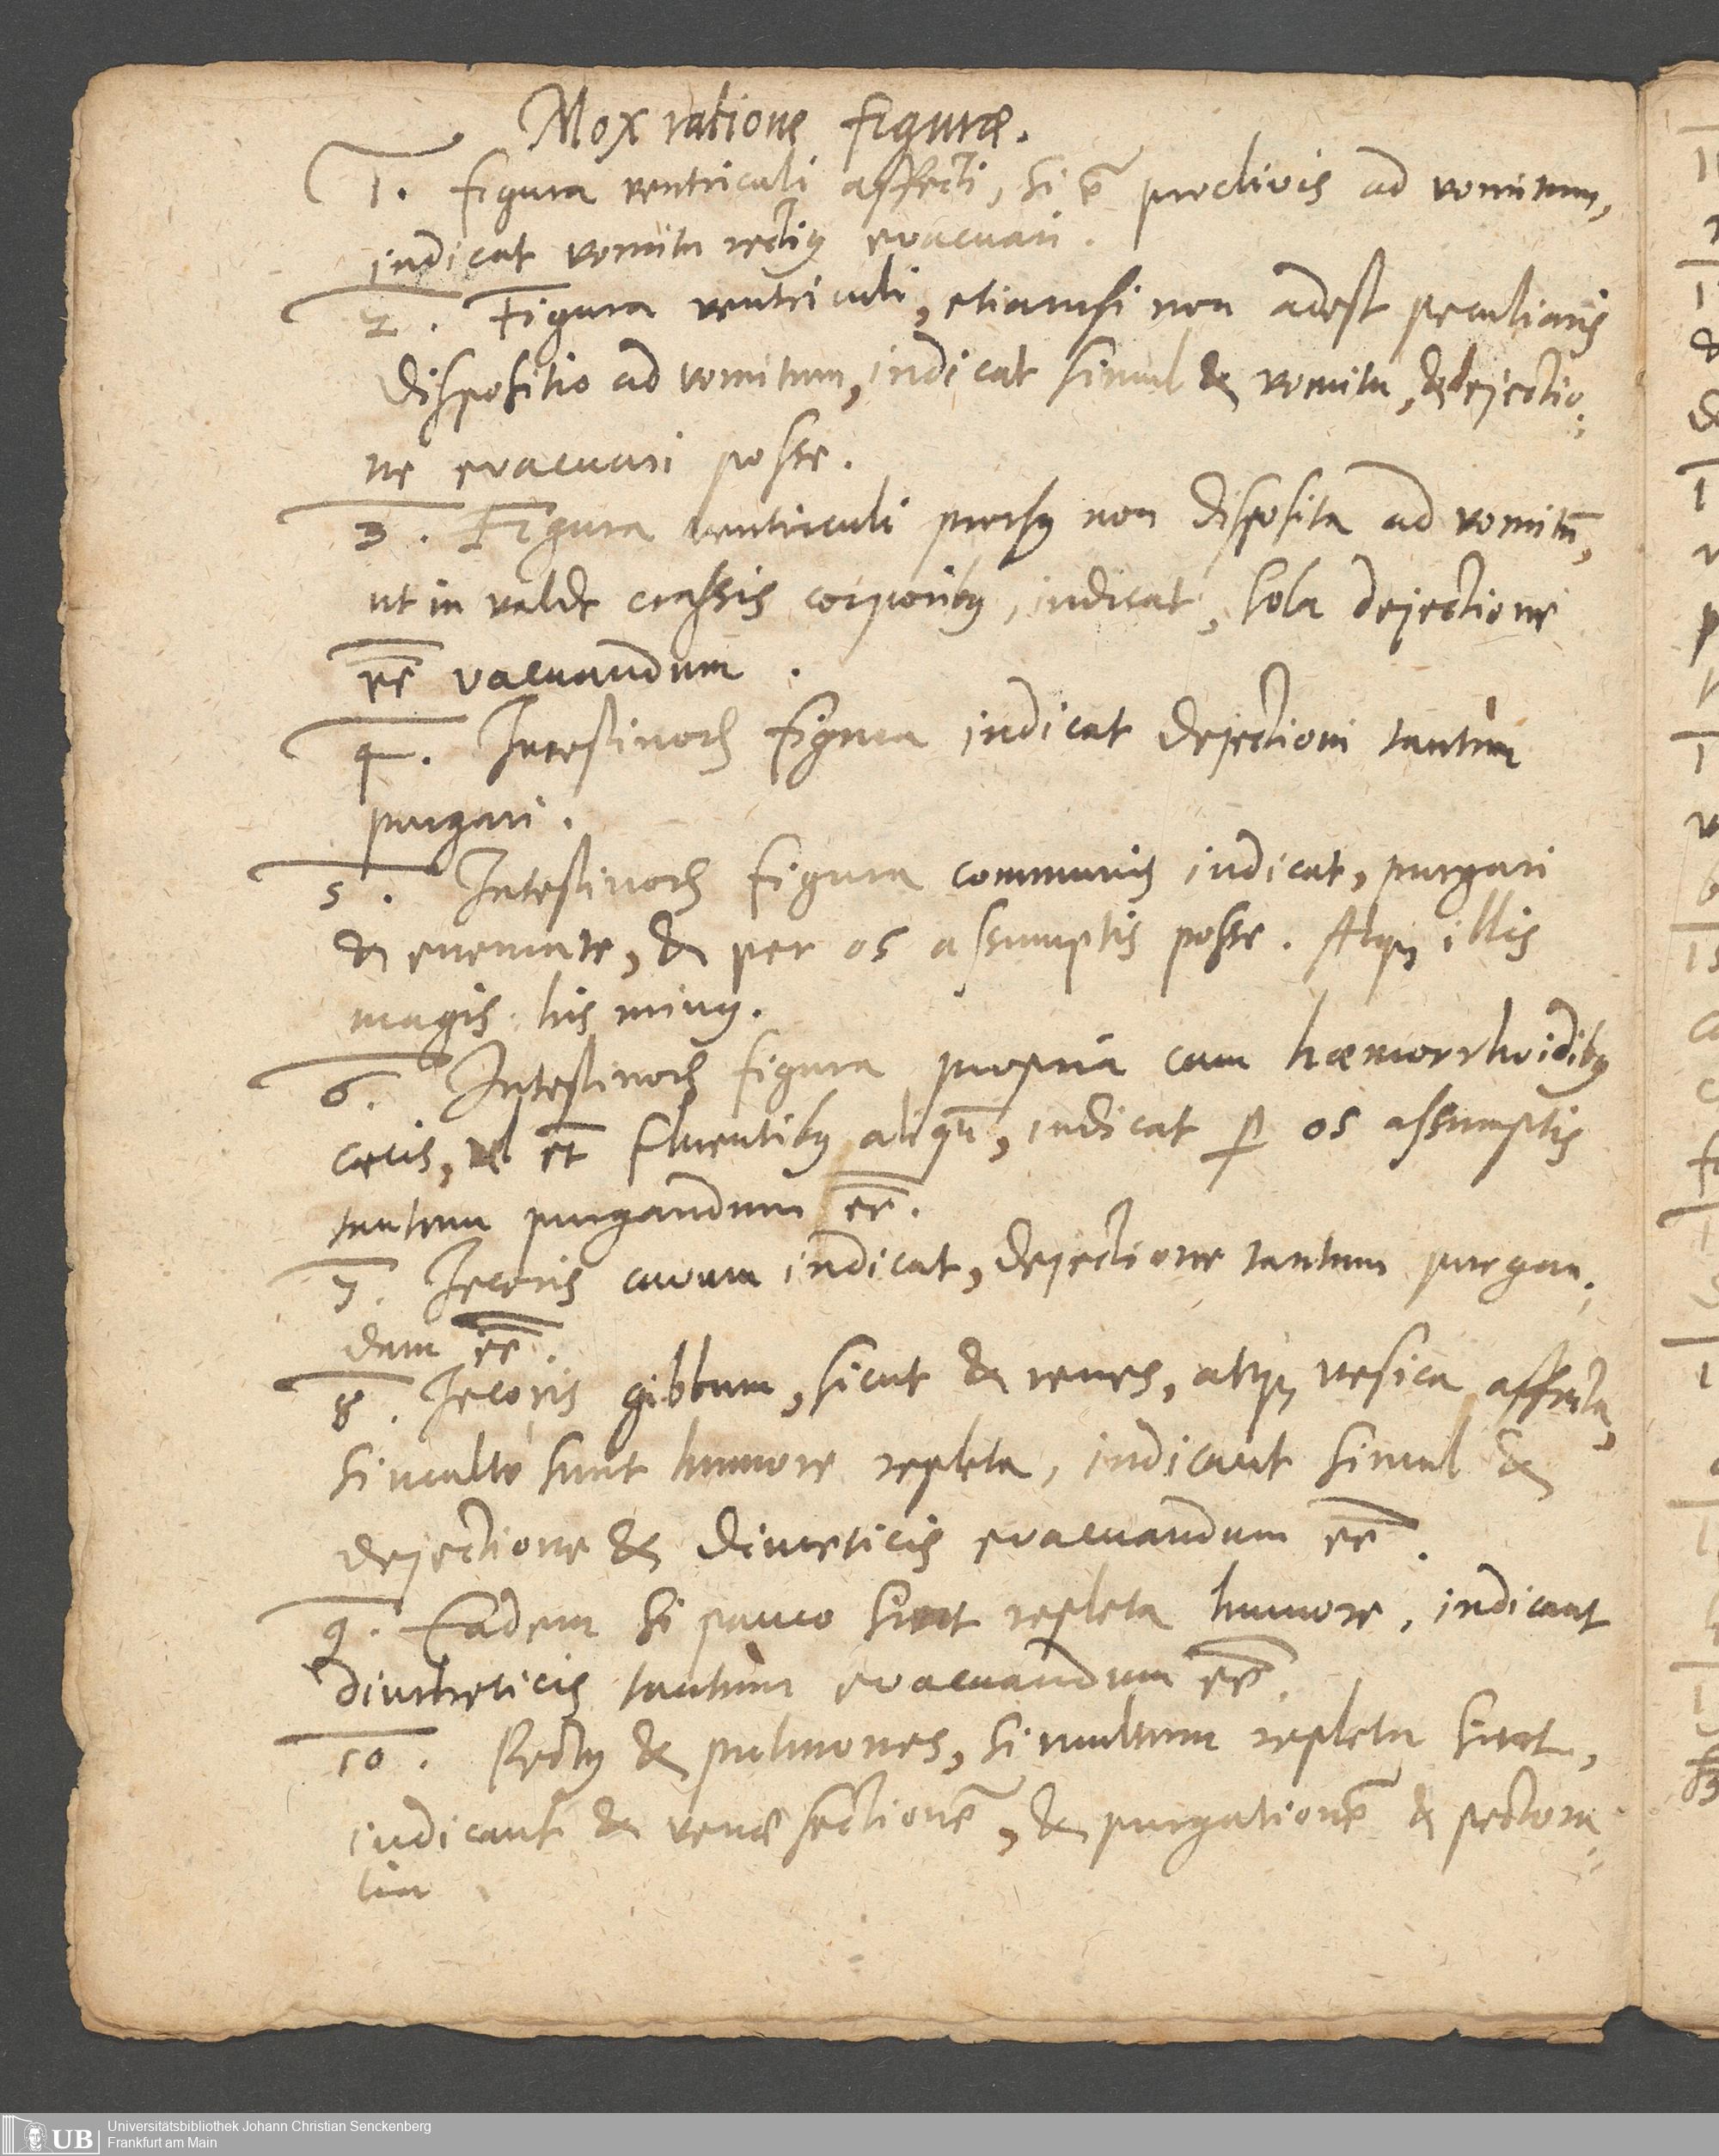 Mox ratione figuræ.
1. Figura ventriculi affecti, si ē proclivis ad vomitum,
indicat vomitu rectiꝰ evacuari.
2. Figura ventriculi, etiamsi non adest peculiaris
dispositio ad vomitum, indicat simul & vomitu, & dejectio=
ne evacuari posse.
3. Figura ventriculi prorsꝰ non disposita ad vomitū,
ut in valde crassis corporibꝰ, indicat, sola dejectione
eē vacuandum.
4. Intestinoꝝ figura indicat dejectioni tantum
purgari.
5. Intestinoꝝ figura communis indicat, purgari
& enemate, & per os assumptis posse. Atqꝫ illis
magis. his minꝰ.
6. Intestinoꝝ figura propria cum hæmorrhoidibꝰ
cæcis, vel et̄ fluentibꝰ aliqñ, indicat ꝑ os assumptis
tantum purgandum eē.
7. Jecoris cavum indicat, dejectione tantum purgan=
dum eē.
8. Jecoris gibbum, sicut & renes, atqꝫ vesica affecta,
si multo sunt humore repleta, indicant simul &
dejectione & diureticis evacuandum eē.
9. Eadem si pauco sunt repleta humore, indicant
diurheticis tantum evacuandum eē.
10. Pectꝰ & pulmones, si multum repleta sunt,
indicant & venæ sectionē, & purgationē & pectora=
lia.
UB Universitätsbibliothek Johann Christian Senckenberg
Frankfurt am Main